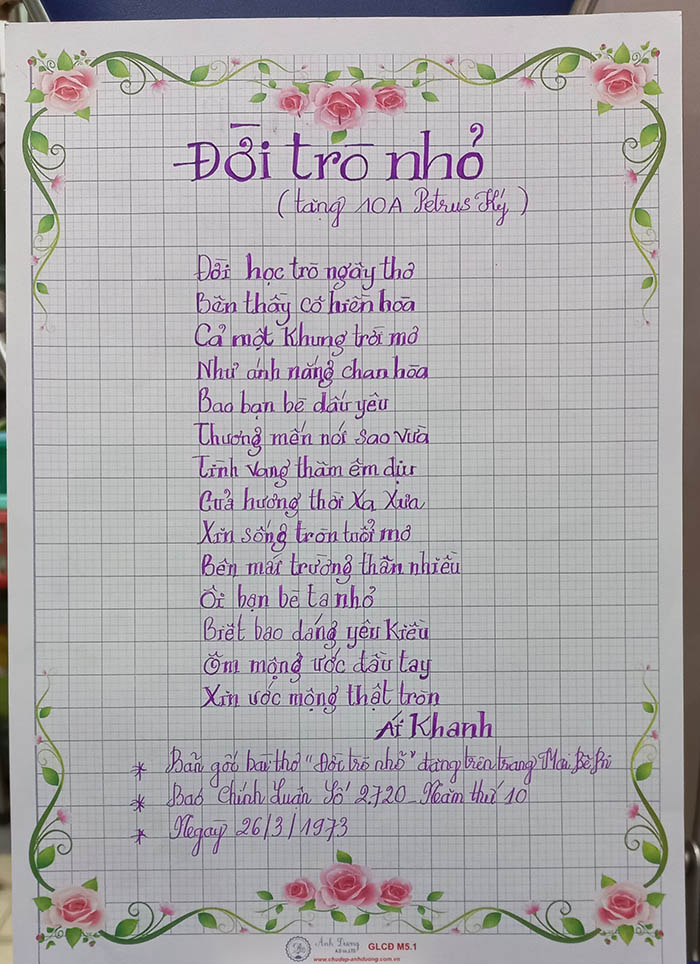 Đời trò nhỏ
(tặng 10A Petrus Ký)
Đời học trò ngây thơ
Bên thầy cô hiền hòa
Cả một khung trời mơ
Như ánh nắng chan hòa
Bao bạn bè dấu yêu
Thương mến nói sao vừa
Tình vang thầm êm dịu
Của hương thời xa xưa
Xin sống tròn tuổi mơ
Bên mái trường thân nhiều
Ôi bạn bè ta nhỏ
Biết bao dáng yêu kiều
Ôm mộng ước đầu tay
Xin ước mộng thật tròn
Ái Khanh
* Bản gốc bài thơ "Đời trò nhỏ" đăng trên trang Mai Bê Bi
* Báo Chính Luận Số 2.720 _ Năm thứ 10
* Ngày 26/3/1973
Ánh Dương
A.D co.,LTD
GLCĐ M5.1
www.chudep-anhduong.com.vn